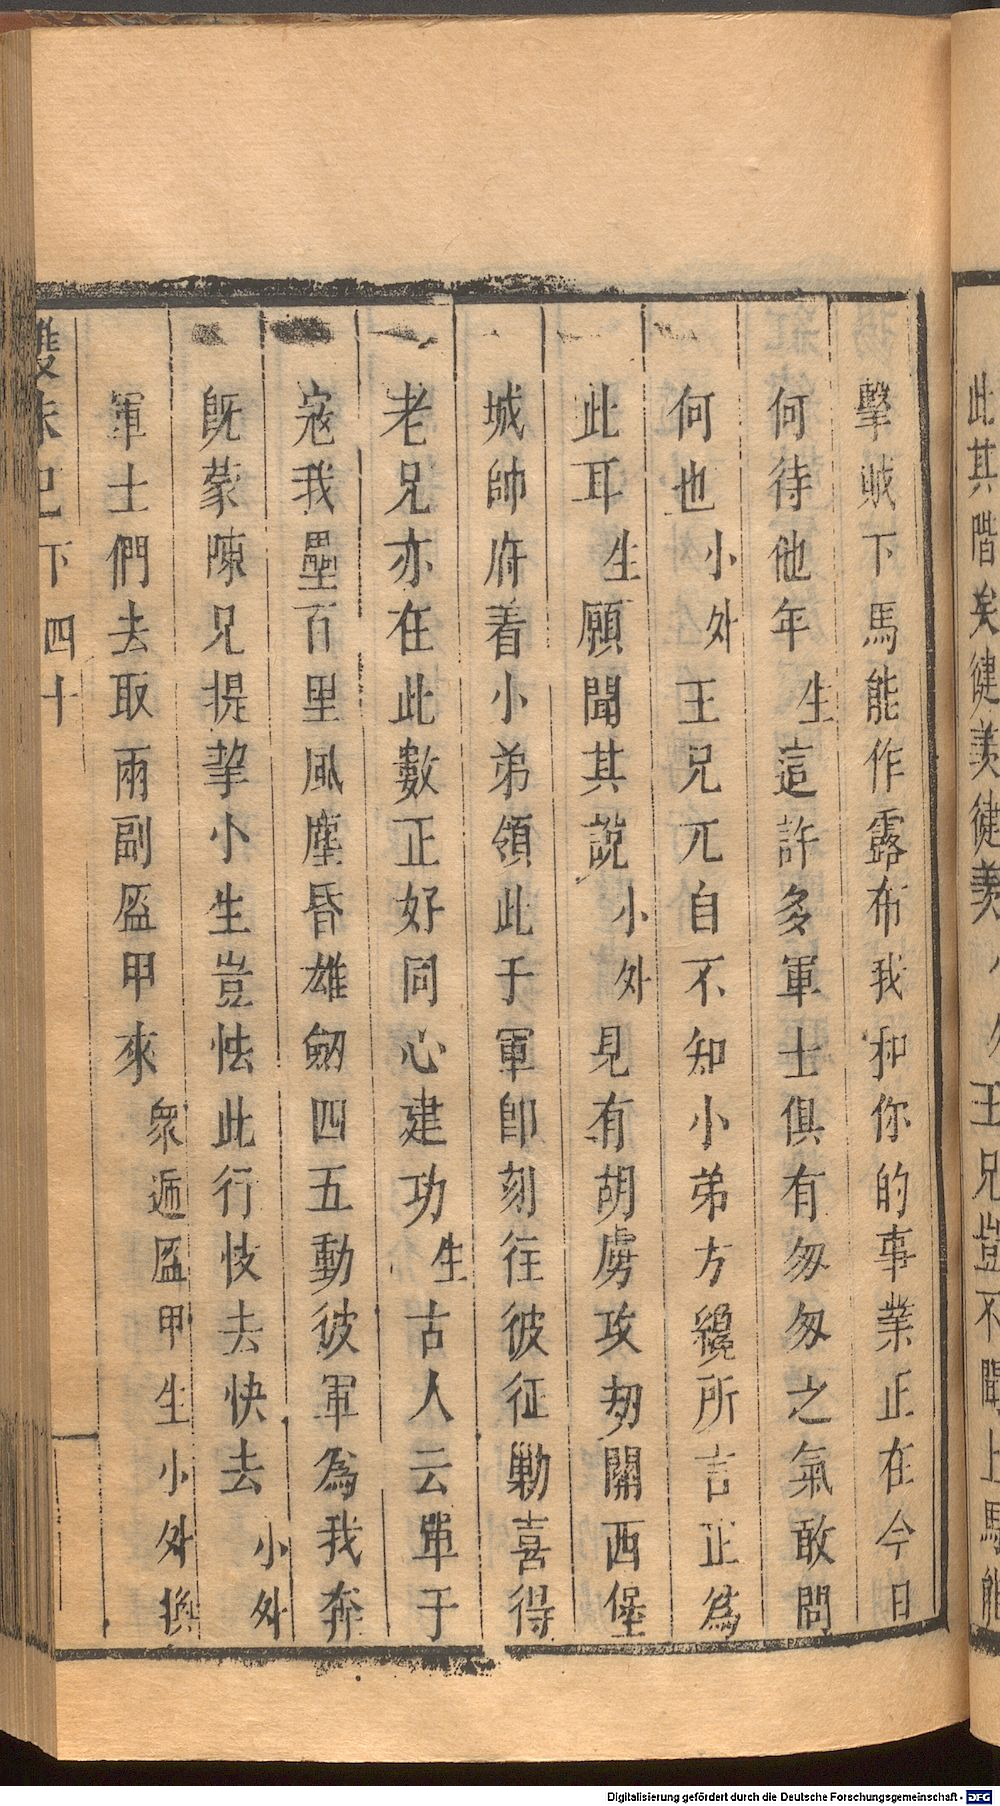 此其階矣徤羡徤羡小外王兄豈不聞上馬能
擊賊下馬能作露布我和你的事業正在今日
何待他年生這許多軍士俱有匆匆之氣敢問
何也小外王兄兀自不知小弟方纔所言正為
此耳生願聞其說小外見有胡虜攻刼關西堡
城帥府着小弟領此于軍即刻往彼征勦喜得
老兄亦在此數正好同心建功生古人云單于
寇我壘百里風塵昏雄劒四五動彼軍為我奔
旣蒙陳兄提挈小生豈怯此行忮去快去小外
軍士們去取兩副盔甲來衆遞盔甲生小外換
雙朱記下四十
Digitalisierung gefördert durch die Deutsche Forschungsgemeinschaft - DFG